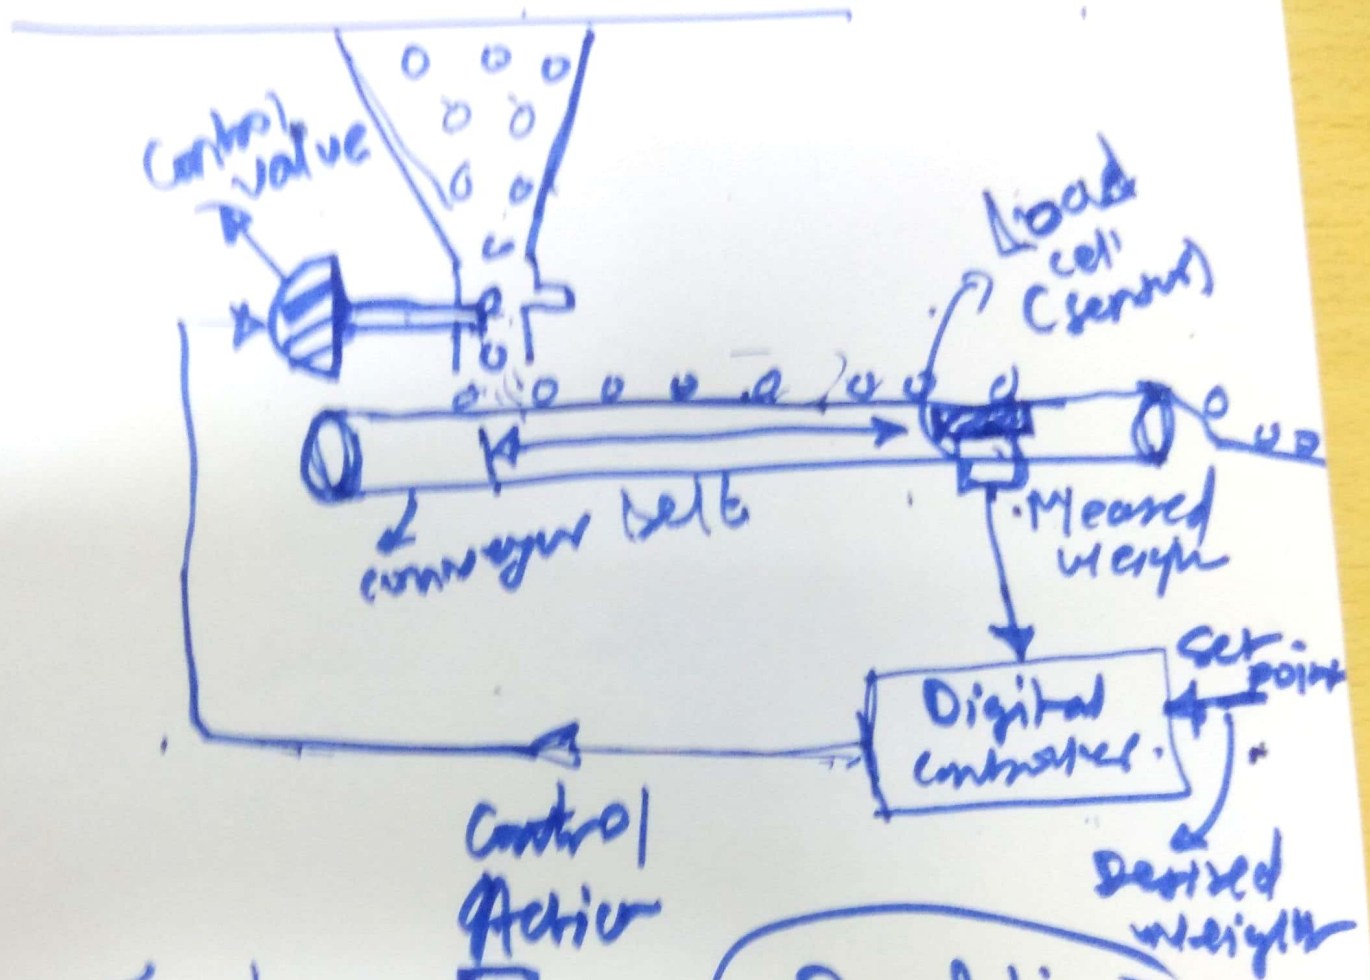 Control
valve
Load
cell
(sensor)
conveyor belt
Meased
weight
Set
point
Digital
controller.
Control
Action
Desired
weight